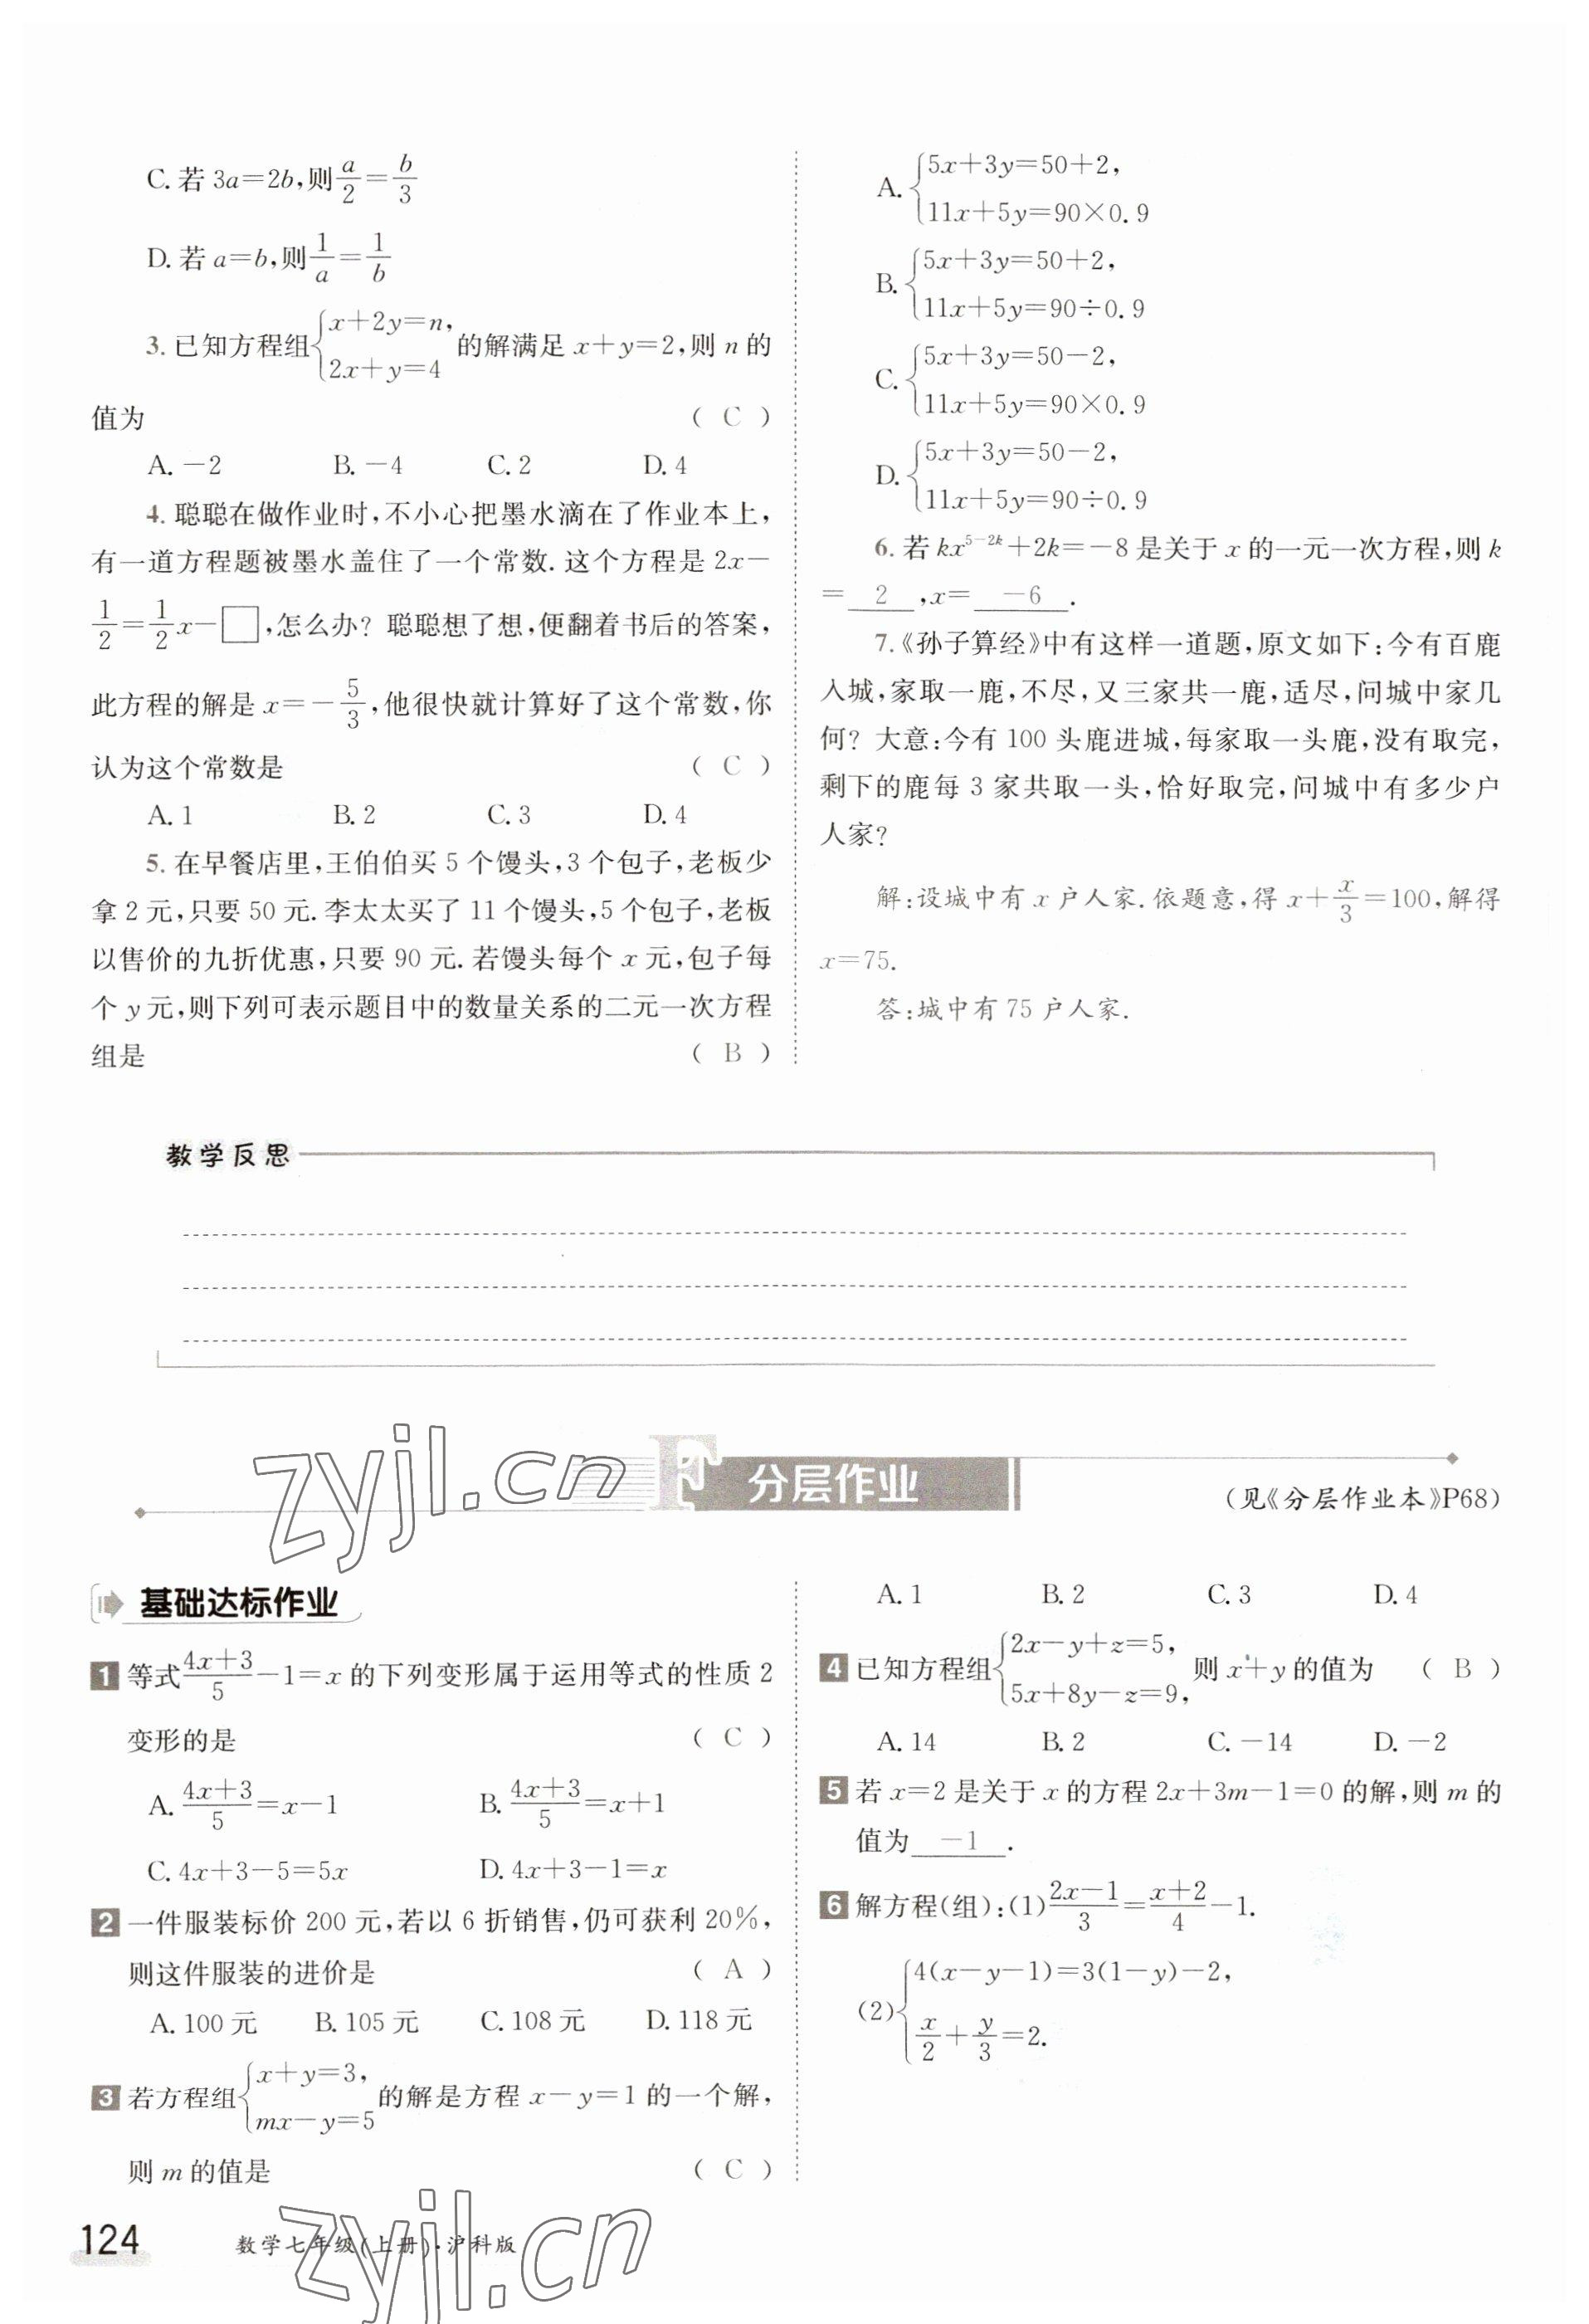 C. 若 3a=2b,则 a/2=b/3
D. 若 a=b,则 1/a=1/b
3. 已知方程组{x+2y=n, 2x+y=4 的解满足 x+y=2,则 n 的
值为 ( C )
A. -2 B. -4 C. 2 D. 4
4. 聪聪在做作业时,不小心把墨水滴在了作业本上,
有一道方程题被墨水盖住了一个常数. 这个方程是 2x-
1/2=1/2x-□,怎么办? 聪聪想了想,便翻着书后的答案,
此方程的解是 x=-5/3,他很快就计算好了这个常数,你
认为这个常数是 ( C )
A. 1 B. 2 C. 3 D. 4
5. 在早餐店里,王伯伯买 5 个馒头,3 个包子,老板少
拿 2 元,只要 50 元. 李太太买了 11 个馒头,5 个包子,老板
以售价的九折优惠,只要 90 元. 若馒头每个 x 元,包子每
个 y 元,则下列可表示题目中的数量关系的二元一次方程
组是 ( B )
A. {5x+3y=50+2,
11x+5y=90×0.9
B. {5x+3y=50+2,
11x+5y=90÷0.9
C. {5x+3y=50-2,
11x+5y=90×0.9
D. {5x+3y=50-2,
11x+5y=90÷0.9
6. 若 kx^{5-2k}+2k=-8 是关于 x 的一元一次方程,则 k
= 2 ,x= -6 .
7.《孙子算经》中有这样一道题,原文如下:今有百鹿
入城,家取一鹿,不尽,又三家共一鹿,适尽,问城中家几
何? 大意:今有 100 头鹿进城,每家取一头鹿,没有取完,
剩下的鹿每 3 家共取一头,恰好取完,问城中有多少户
人家?
解:设城中有 x 户人家. 依题意,得 x+x/3=100,解得
x=75.
答:城中有 75 户人家.
教学反思
zyjl.cn
F 分层作业
(见《分层作业本》P68)
基础达标作业
1 等式(4x+3)/5-1=x 的下列变形属于运用等式的性质 2
变形的是 ( C )
A. (4x+3)/5=x-1 B. (4x+3)/5=x+1
C. 4x+3-5=5x D. 4x+3-1=x
2 一件服装标价 200 元,若以 6 折销售,仍可获利 20%,
则这件服装的进价是 ( A )
A. 100 元 B. 105 元 C. 108 元 D. 118 元
3 若方程组{x+y=3, mx-y=5 的解是方程 x-y=1 的一个解,
则 m 的值是 ( C )
A. 1 B. 2 C. 3 D. 4
4 已知方程组{2x-y+z=5, 5x+8y-z=9, 则 x+y 的值为 ( B )
A. 14 B. 2 C. -14 D. -2
5 若 x=2 是关于 x 的方程 2x+3m-1=0 的解,则 m 的
值为 -1 .
6 解方程(组):(1)(2x-1)/3=(x+2)/4-1.
(2){4(x-y-1)=3(1-y)-2,
x/2+y/3=2.
124 数学七年级(上册)·沪科版
zyjl.cn